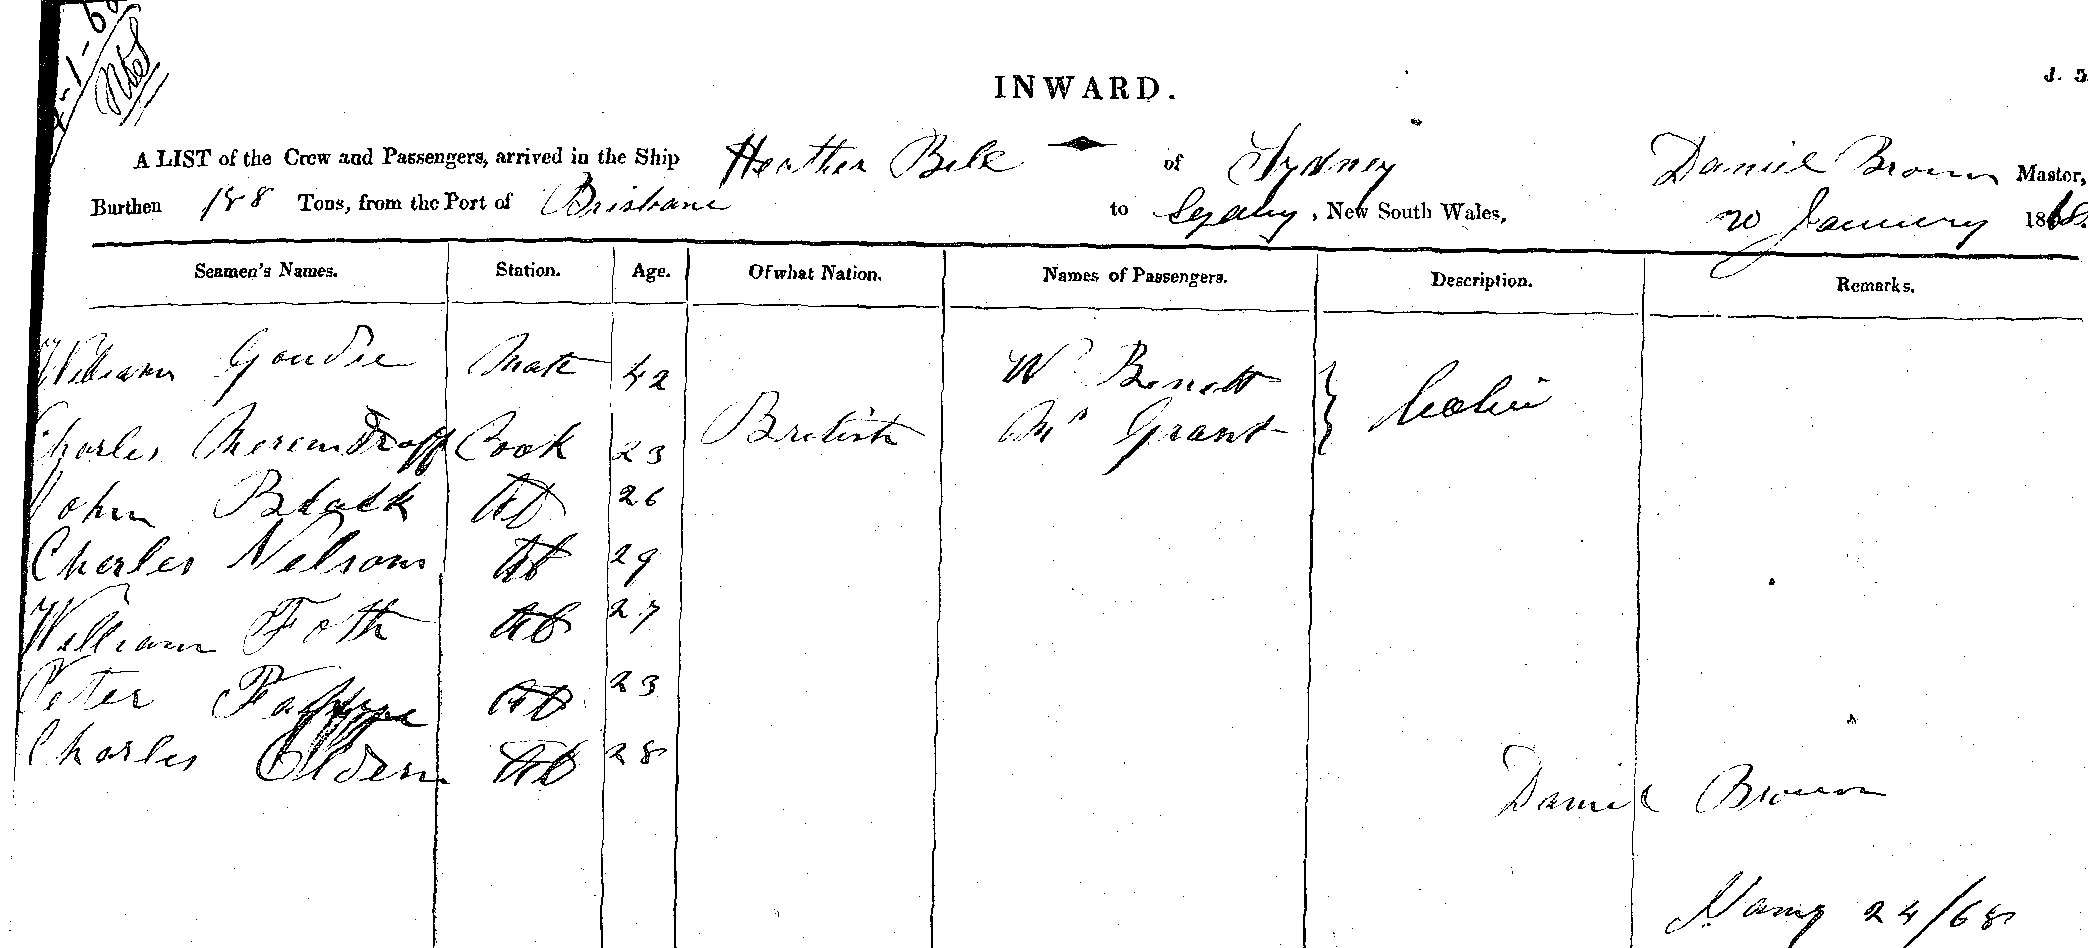 INWARD.
J. 5
A LIST of the Crew and Passengers, arrived in the Ship Heather Bell of Sydney Daniel Brown Master,
Burthen 188 Tons, from the Port of Brisbane to Sydney, New South Wales, 20 January 1868.
Seamen's Names. Station. Age. Of what Nation. Names of Passengers. Description. Remarks.
William Goudie Mate 42 Wm Benett
Charles Cook 23 British Mrs Grant Cabin
John Black AB 26
Charles Nelson AB 29
William Foth AB 27
Peter AB 23
Charles Oldern AB 28
Daniel Brown
24/68